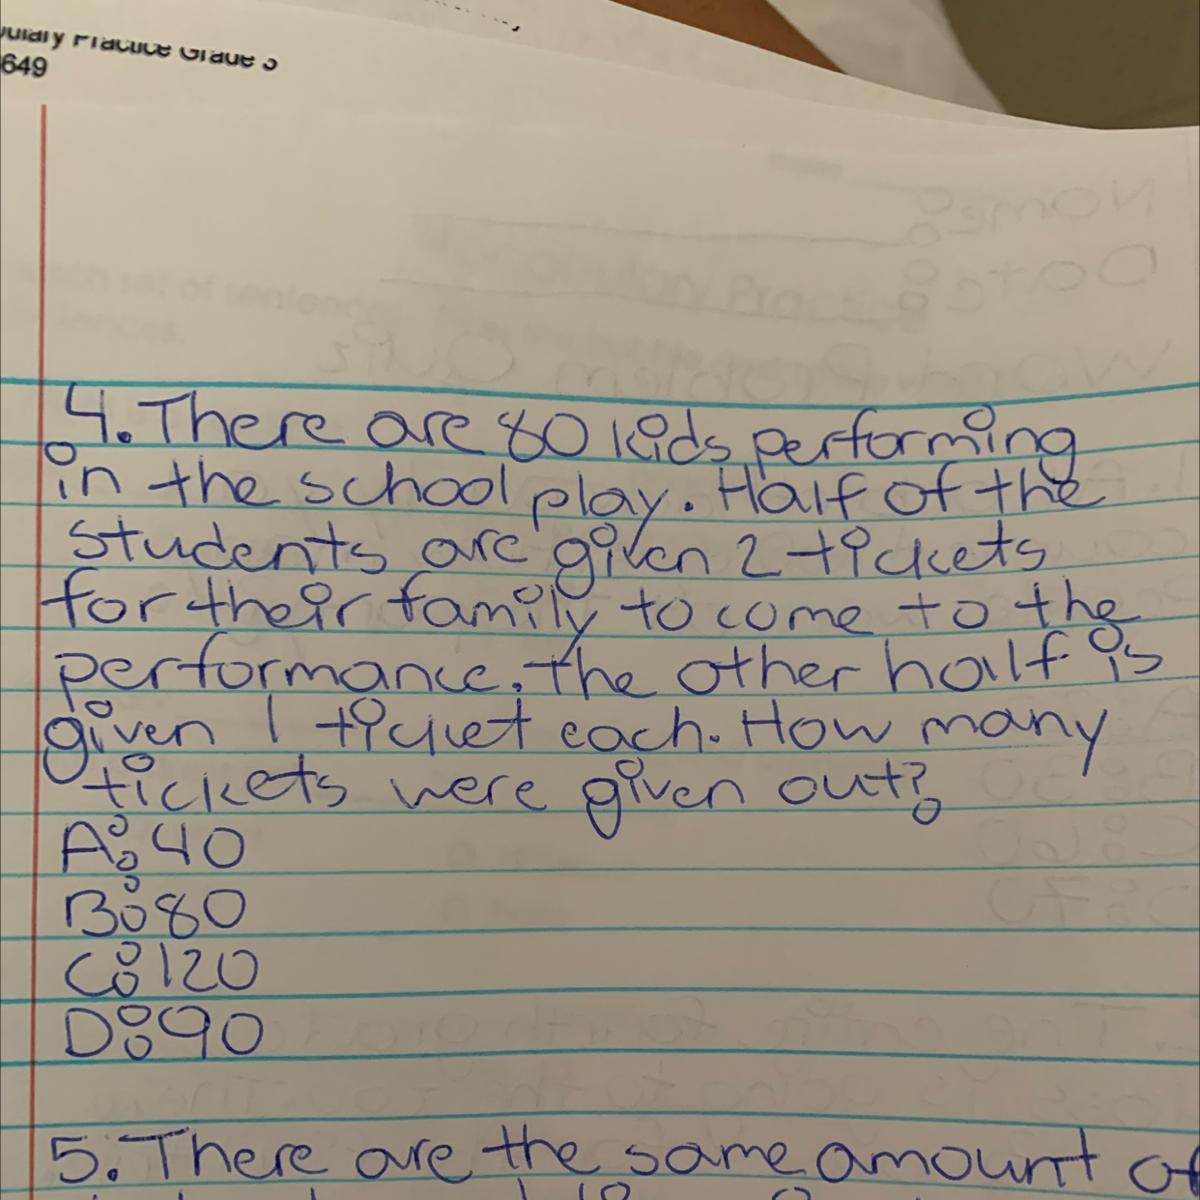 Practice Grade 3
649
4. There are 80 kids performing
in the school play. Half of the
students are given 2 tickets
for their family to come to the
performance. the other half is
given 1 ticket each. How many
tickets were given out?
A: 40
B: 80
C: 120
D: 90
5. There are the same amount of